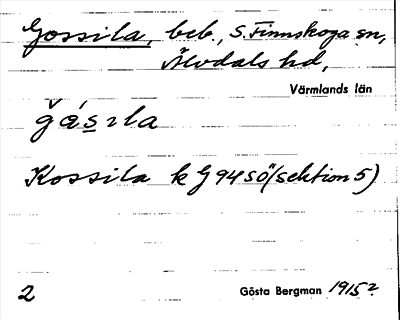 Gossila, beb., S. Finnskoga sn,
Älvdals hd,
Värmlands län
ǧásıla
Kossila k G 94 SÖ (sektion 5)
2
Gösta Bergman 1915?